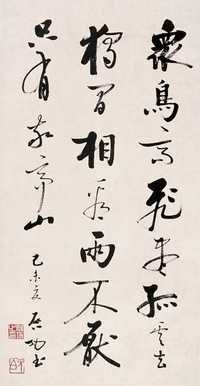 衆鳥高飛盡孤雲去
獨閒相看兩不厭
只有敬亭山
己未夏 启功書